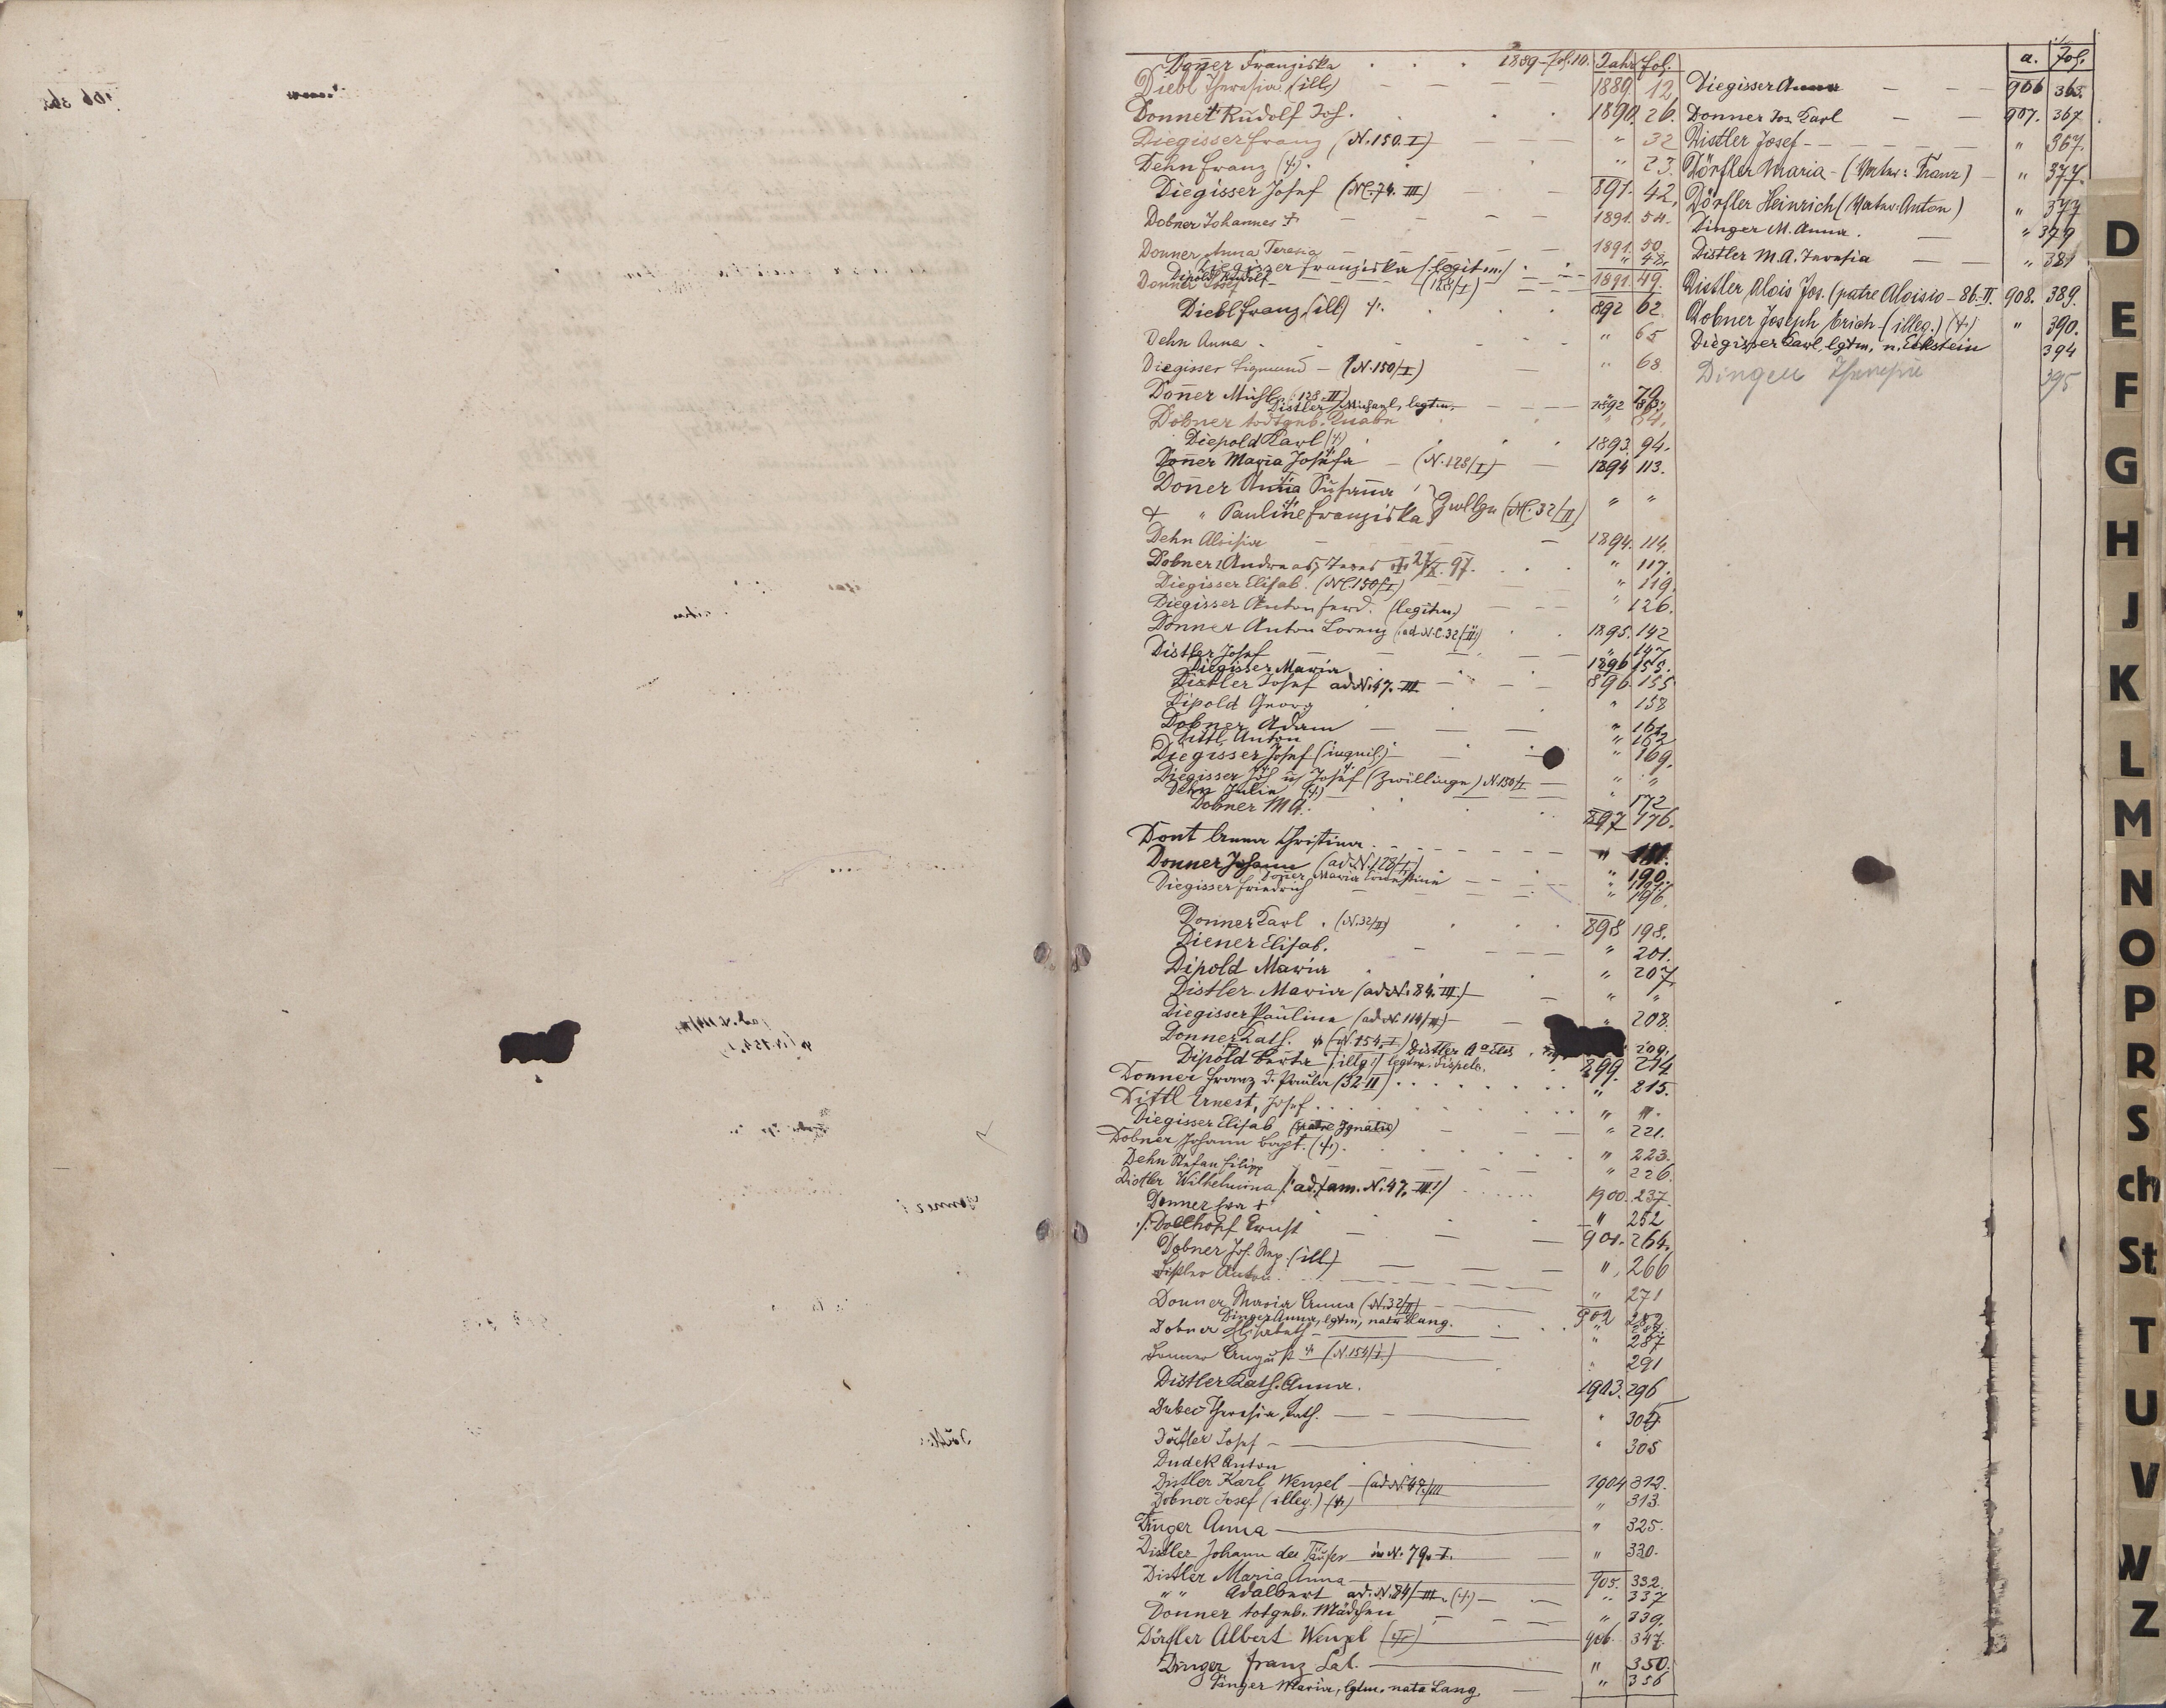 Doñer Franziska . . . 1889 fol. 10. Jahr fol.
Diebl Theresia (ill.) — — — 1889 12.
Donner Rudolf Jos. . . 1890. 26.
Diegisser Franz (N. 150. I) — — — " 32
Dehn Franz (†). . " 23.
Diegisser Josef (NC. 74. III) — — 891. 42.
Dobner Johannes † — — — — 1891. 54.
Donner Anna Teresia — — — 1891. 50.
Diegisser Franziska (legitm.) . . " 48.
Dipold Rudolf
Donner Josef — (128/I) — — 1891. 49.
Diebl Franz (ill) †. . . . 892 62.
Dehn Anna . — — — " 65
Diegisser Sigmund — (N. 150/I) — " 68
Doñer (128. II) " 79
Distler Michael, legtm. — — — 1892
Dobner todtgeb. Knabe " 84.
Diepold Karl (†) . . . . 1893. 94.
Doñer Maria Josefa — (N. 128/I) — 1894 113.
Doñer Anna Susanna " "
† " Pauline Franziska } Zwllge (NC. 32/II)
Dehn Aloisia — — — 1894. 114.
Dobner Andreas 97. . . " 117.
Diegisser Elisab. (NC. 150/I) — — " 119.
Diegisser Anton Ferd. (legitm.) — — " 126.
Donner Anton Lorenz (ad N.C. 32/II) . . 1895. 142
Distler Josef — — — " 147
Diegisser Maria . . 1896 155.
Distler Josef ad N. 47. III — — 896. 155
Dipold Georg . . . " 158
Dobner Adam — — — " 162
Dittl Anton " 162
Diegisser Josef — . . " 169.
Diegisser Jos. u Josef (Zwillinge) N. 150/I — " "
Dehn Julia (†) — — — " 172
Dobner M A. . . . 897 176.
Dont Anna Christina . — — — — " 181.
Donner Johann (ad N. 128/I) " 190.
Doñer Maria Ernestine — —
Diegisser Friedrich — — — " 196.
Donner Karl . (N. 32/II) . . . 898 198.
Diener Elisab. — — — " 201.
Dipold Maria . . . " 207.
Distler Maria (ad N. 84. III) — — " "
Diegisser Paulina (ad N. 114/II) — — " 208.
Donner Kath. † (N. 154. I) Distler 209.
Dipold Berta (illg.) legtm. 899. 214
Donner Franz d. Paula (32 II) . . . . . " 215.
Dittl Ernest, Josef . . . . . . " "
Diegisser Elisab (patre Ignatio) — — " 221.
Dobner Johann Bapt. (†). . . . . " 223.
Dehn Stefan Filipp — — — — " 226.
Distler Wilhelmina (ad fam. N. 47. III) . . . 1900. 237.
Donner Eva † . . . " 252
Dollhopf Ernst — — — 901. 264.
Dobner Jos. Nep. (ill) — — — " 266
Distler Anton . . — — — " 271
Donner Maria Anna (N. 32/II) — — 902 282
Dinger Anna, lgtm, nata Lang. . . " 287.
Dobner Elisabeth — — — " 287
Donner August † (N. 154/I) — " 291
Distler Kath. Anna. 1903. 296
Theresia Kath. — — — "
Josef — — " 305
Dudek Anton . .
Distler Karl Wenzel — (ad N. 47/III 1904 312.
Dobner Josef (illeg.) (†) — " 313.
Dinger Anna — " 325.
Distler Johann der Täufer in N. 79. I. — " 330.
Distler Maria Anna — 905. 332.
" " Adalbert ad. N. 84/III. (†) — " 337
Donner totgeb. Mädchen — — " 339.
Dörfler Albert Wenzel (†) — 906. 347.
Dinger Franz Sal. — " 350.
Dinger Maria, lgtm. nata Lang — " 356
a. Fol.
Diegisser Anna — — 906 363.
Donner Jos. Karl — — 907. 367.
Distler Josef — — — — " 367.
Dörfler Maria — (Vater: Franz) — " 377.
Dörfler Heinrich (Vater: Anton) " 377
Dinger M. Anna. — " 379
Distler M. A. Teresia — — " 381
Distler Alois Jos. (patre Aloisio — 86. II. 908. 389.
Dobner Joseph Erich (illeg.) (†) " 390.
Diegisser Karl, lgtm. n. Eckstein 394
Dinger Theresie 395
D
E
F
G
H
J
K
L
M
N
O
P
R
S
ch
St
T
U
V
W
Z